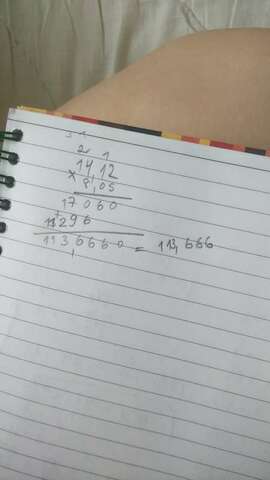 2 1
14,12
x 8,05
17060
11296
1136660 = 113,666